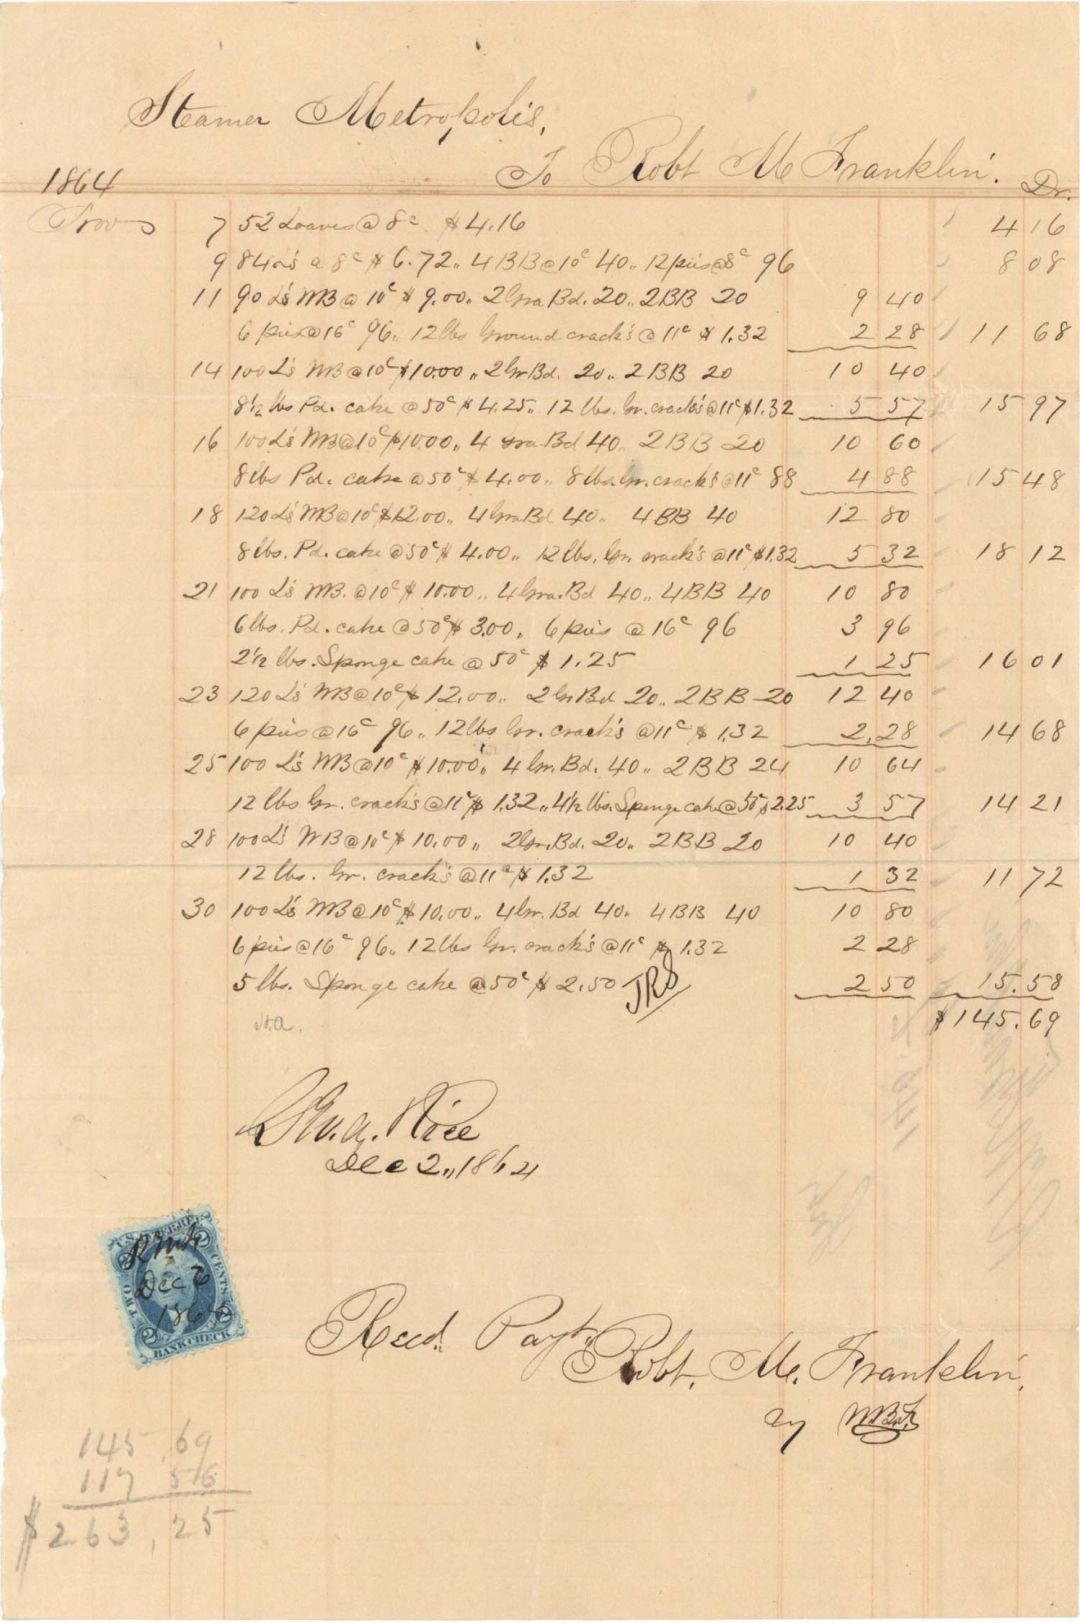 Steamer Metropolis,
To Robt M Franklin. Dr.
1864
Nov 7 52 Loaves @ 8c. $4.16 4 16
9 84 L's @ 8c $6.72 „ 4 BB @ 10c 40 „ 12 pies @ 8c 96 8 08
11 90 L's WB @ 10c $9.00 „ 2 Gra Bd. 20 „ 2 BB 20 9 40
6 pies @ 16c 96 „ 12 lbs Ground crack's @ 11c $1.32 2 28 11 68
14 100 L's WB @ 10c $10.00 „ 2 Gr Bd. 20 „ 2 BB 20 10 40
8½ lbs Pd. cake @ 50c $4.25 „ 12 lbs. Gr. crack's @ 11c $1.32 5 57 15 97
16 100 L's WB @ 10c $10.00 „ 4 Gra Bd 40 „ 2 BB 20 10 60
8 lbs Pd. cake @ 50c $4.00 „ 8 lbs Gr. crack's @ 11c 88 4 88 15 48
18 120 L's WB @ 10c $12.00 „ 4 Gra Bd 40 „ 4 BB 40 12 80
8 lbs. Pd. cake @ 50c $4.00 „ 12 lbs. Gr. crack's @ 11c $1.32 5 32 18 12
21 100 L's WB. @ 10c $10.00 „ 4 Gra. Bd 40 „ 4 BB 40 10 80
6 lbs. Pd. cake @ 50c $3.00 „ 6 pies @ 16c 96 3 96
2½ lbs. Sponge cake @ 50c $1.25 1 25 16 01
23 120 L's WB @ 10c $12.00 „ 2 Gr Bd 20 „ 2 BB 20 12 40
6 pies @ 16c 96 „ 12 lbs Gr. crack's @ 11c $1.32 2.28 14 68
25 100 L's WB @ 10c $10.00 „ 4 Gr. Bd. 40 „ 2 BB 24 10 64
12 lbs Gr. crack's @ 11c $1.32 „ 4½ lbs. Sponge cake @ 50c $2.25 3 57 14 21
28 100 L's WB @ 10c $10.00 „ 2 Gr. Bd. 20 „ 2 BB 20 10 40
12 lbs. Gr. crack's @ 11c $1.32 1 32 11 72
30 100 L's WB @ 10c $10.00 „ 4 Gr. Bd 40 „ 4 BB 40 10 80
6 pies @ 16c 96 „ 12 lbs Gr. crack's @ 11c $1.32 2 28
5 lbs. Sponge cake @ 50c $2.50 JRS 2 50 15.58
$145.69
Rice
Dec 2 „ 1864
U.S. INTER. REV.
RMF
Dec 6
1864
TWO CENTS
2 2
BANK CHECK
Recd. Payt.
Robt. M. Franklin,
by WBF
145.69
117 56
$263,25